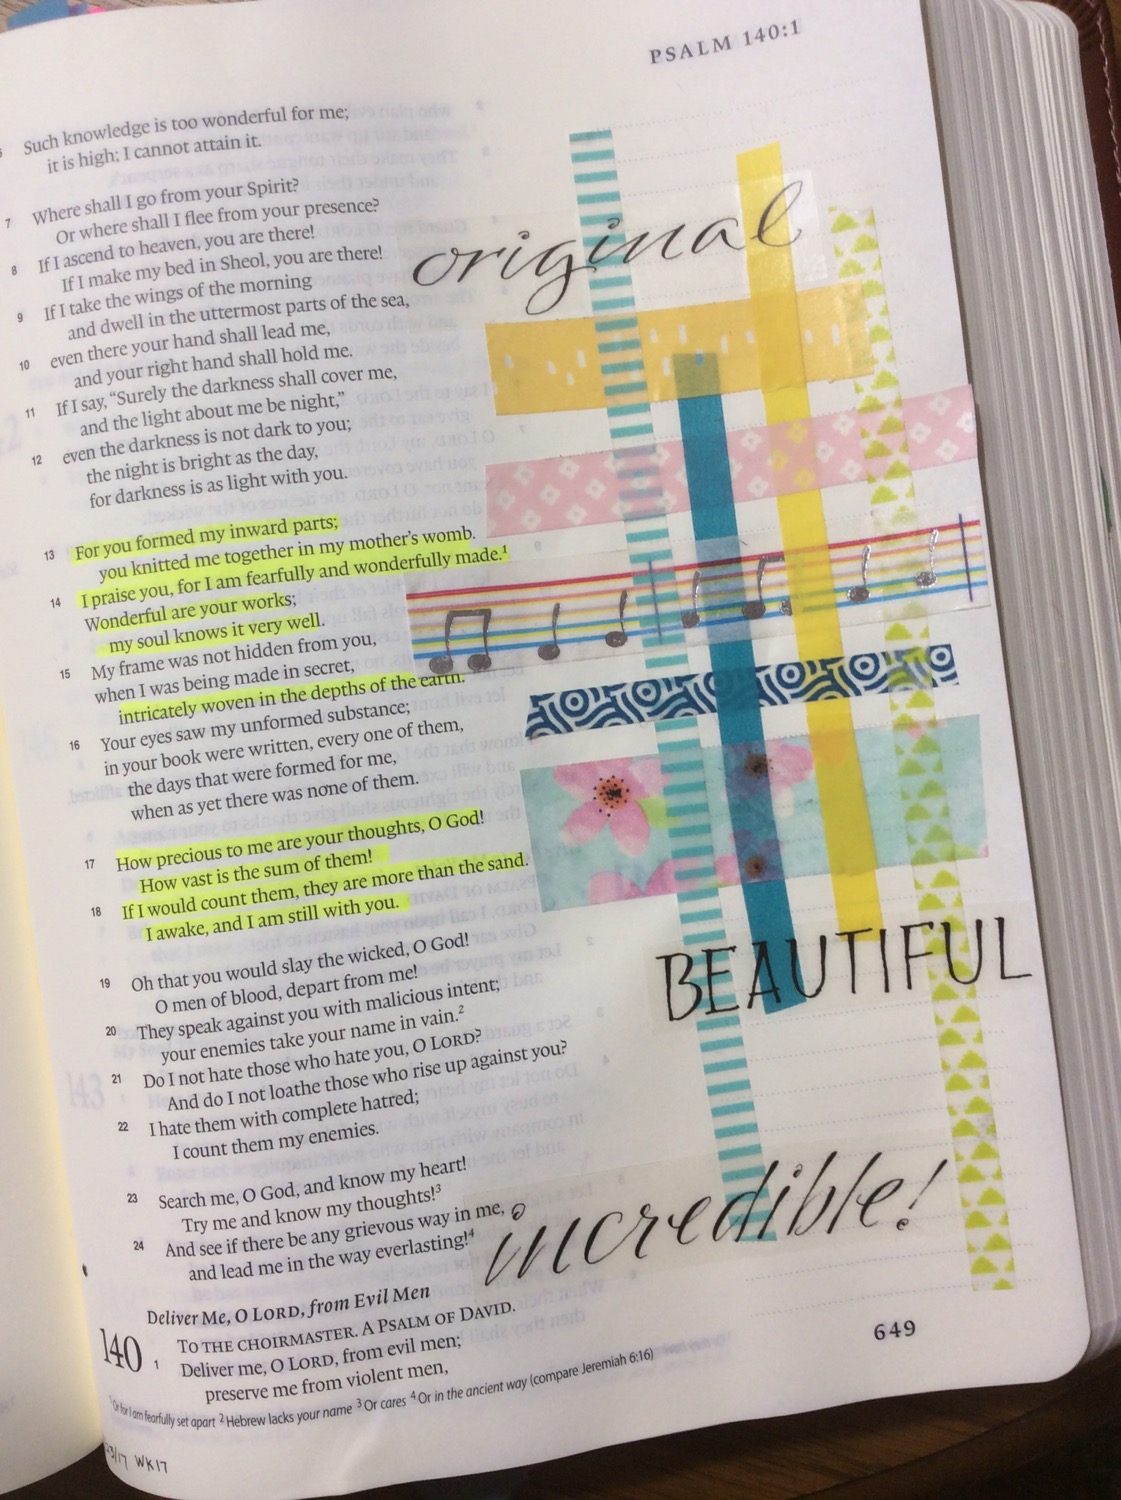 PSALM 140:1
Such knowledge is too wonderful for me;
it is high; I cannot attain it.
7 Where shall I go from your Spirit?
Or where shall I flee from your presence?
8 If I ascend to heaven, you are there!
If I make my bed in Sheol, you are there!
9 If I take the wings of the morning
and dwell in the uttermost parts of the sea,
10 even there your hand shall lead me,
and your right hand shall hold me.
11 If I say, “Surely the darkness shall cover me,
and the light about me be night,”
12 even the darkness is not dark to you;
the night is bright as the day,
for darkness is as light with you.
13 For you formed my inward parts;
you knitted me together in my mother’s womb.
14 I praise you, for I am fearfully and wonderfully made.1
Wonderful are your works;
my soul knows it very well.
15 My frame was not hidden from you,
when I was being made in secret,
intricately woven in the depths of the earth.
16 Your eyes saw my unformed substance;
in your book were written, every one of them,
the days that were formed for me,
when as yet there was none of them.
17 How precious to me are your thoughts, O God!
How vast is the sum of them!
18 If I would count them, they are more than the sand.
I awake, and I am still with you.
19 Oh that you would slay the wicked, O God!
O men of blood, depart from me!
20 They speak against you with malicious intent;
your enemies take your name in vain.2
21 Do I not hate those who hate you, O LORD?
And do I not loathe those who rise up against you?
22 I hate them with complete hatred;
I count them my enemies.
23 Search me, O God, and know my heart!
Try me and know my thoughts!3
24 And see if there be any grievous way in me,
and lead me in the way everlasting!4
Deliver Me, O LORD, from Evil Men
140 TO THE CHOIRMASTER. A PSALM OF DAVID.
1 Deliver me, O LORD, from evil men;
preserve me from violent men,
1 Or for I am fearfully set apart 2 Hebrew lacks your name 3 Or cares 4 Or in the ancient way (compare Jeremiah 6:16)
649
original
BEAUTIFUL
incredible!
WK17